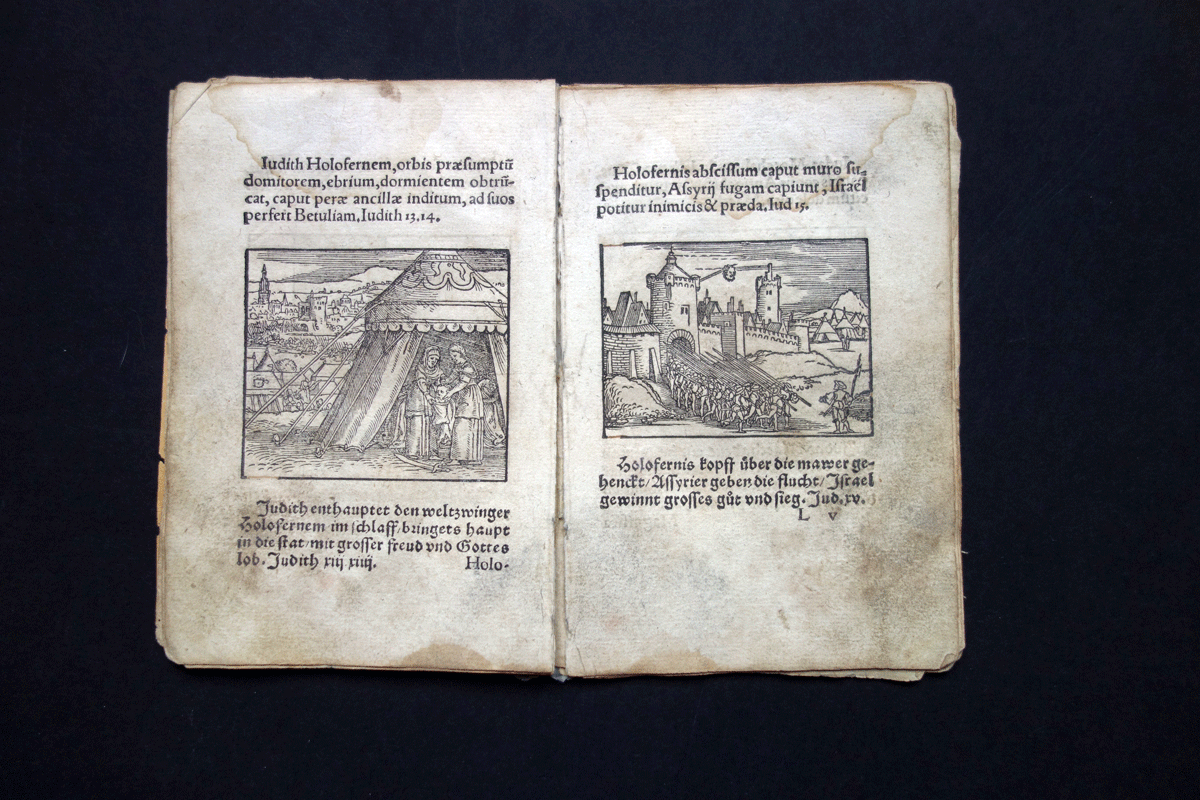 Iudith Holofernem, orbis præsumptū
domitorem, ebrium, dormientem obtrū-
cat, caput peræ ancillæ inditum, ad suos
perfert Betuliam. Iudith 13.14.
Judith enthauptet den weltzwinger
Holofernem im schlaff/bringets haupt
in die stat/mit grosser freud vnd Gottes
lob. Judith xiij xiiij.
Holo-
Holofernis abscissum caput muro su-
spenditur, Assyrij fugam capiunt, Israël
potitur inimicis & præda. Iud 15.
Holofernis kopff über die mawer ge-
henckt/Assyrier geben die flucht/Israel
gewinnt grosses gůt vnd sieg. Jud. xv.
L v